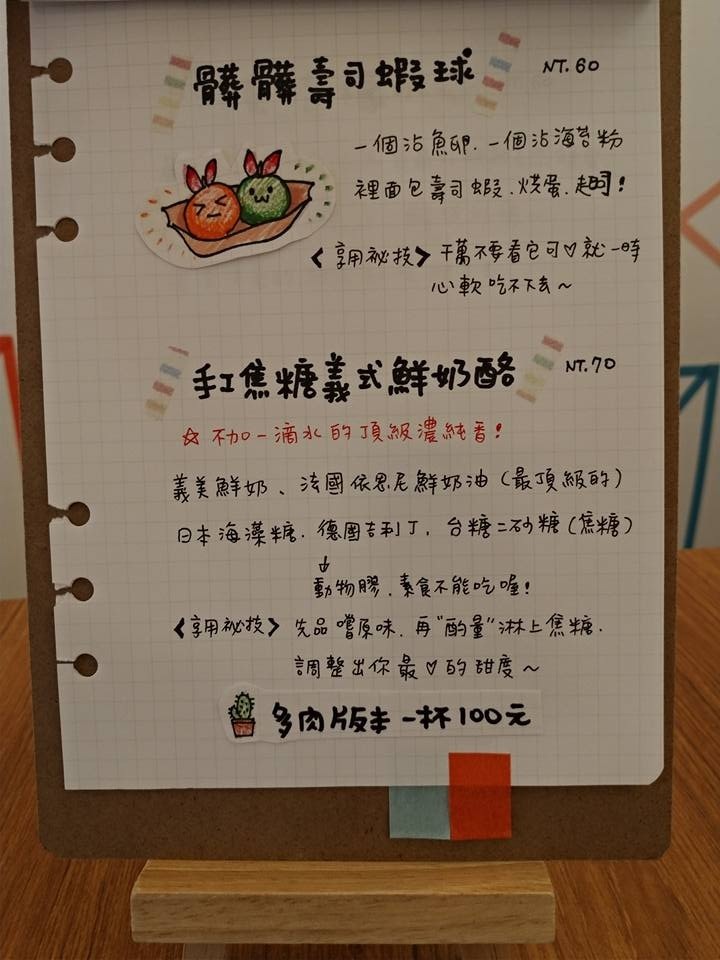 髒髒壽司蝦球 NT.60
一個沾魚卵.一個沾海苔粉
裡面包壽司蝦.烘蛋.起司!
<享用祕技> 千萬不要看它可♡就一時
心軟吃不下去~
手工焦糖義式鮮奶酪 NT.70
☆ 不加一滴水的頂級濃純香!
義美鮮奶、法國依思尼鮮奶油(最頂級的)
日本海藻糖.德國吉利丁.台糖二砂糖(焦糖)
↓
動物膠.素食不能吃喔!
<享用祕技> 先品嚐原味.再"酌量"淋上焦糖.
調整出你最♡的甜度~
多肉版本一杯100元